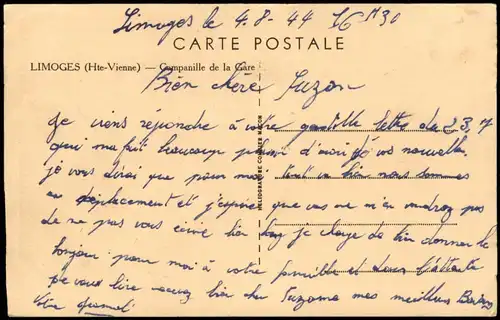 Limoges le 4.8-44 16 H 30
CARTE POSTALE
LIMOGES (Hte-Vienne) — Campanille de la Gare
Bien chère Suzon
Je viens répondre à votre gentille lettre du 23.7
qui ma fait beaucoup plaisir d'avoir de vos nouvelles
je vous dirai que pour moi tout va bien nous sommes
en déplacement et j'espère que vous ne m'en voudrez pas
de ne pas vous écrire bien je charge de bien donner le
bonjour pour moi à votre famille et dans l'attente
de vous lire recevez bien chère Suzanne mes meilleurs Baisers
Votre
HELIOGRAVURE COMBIER MACON